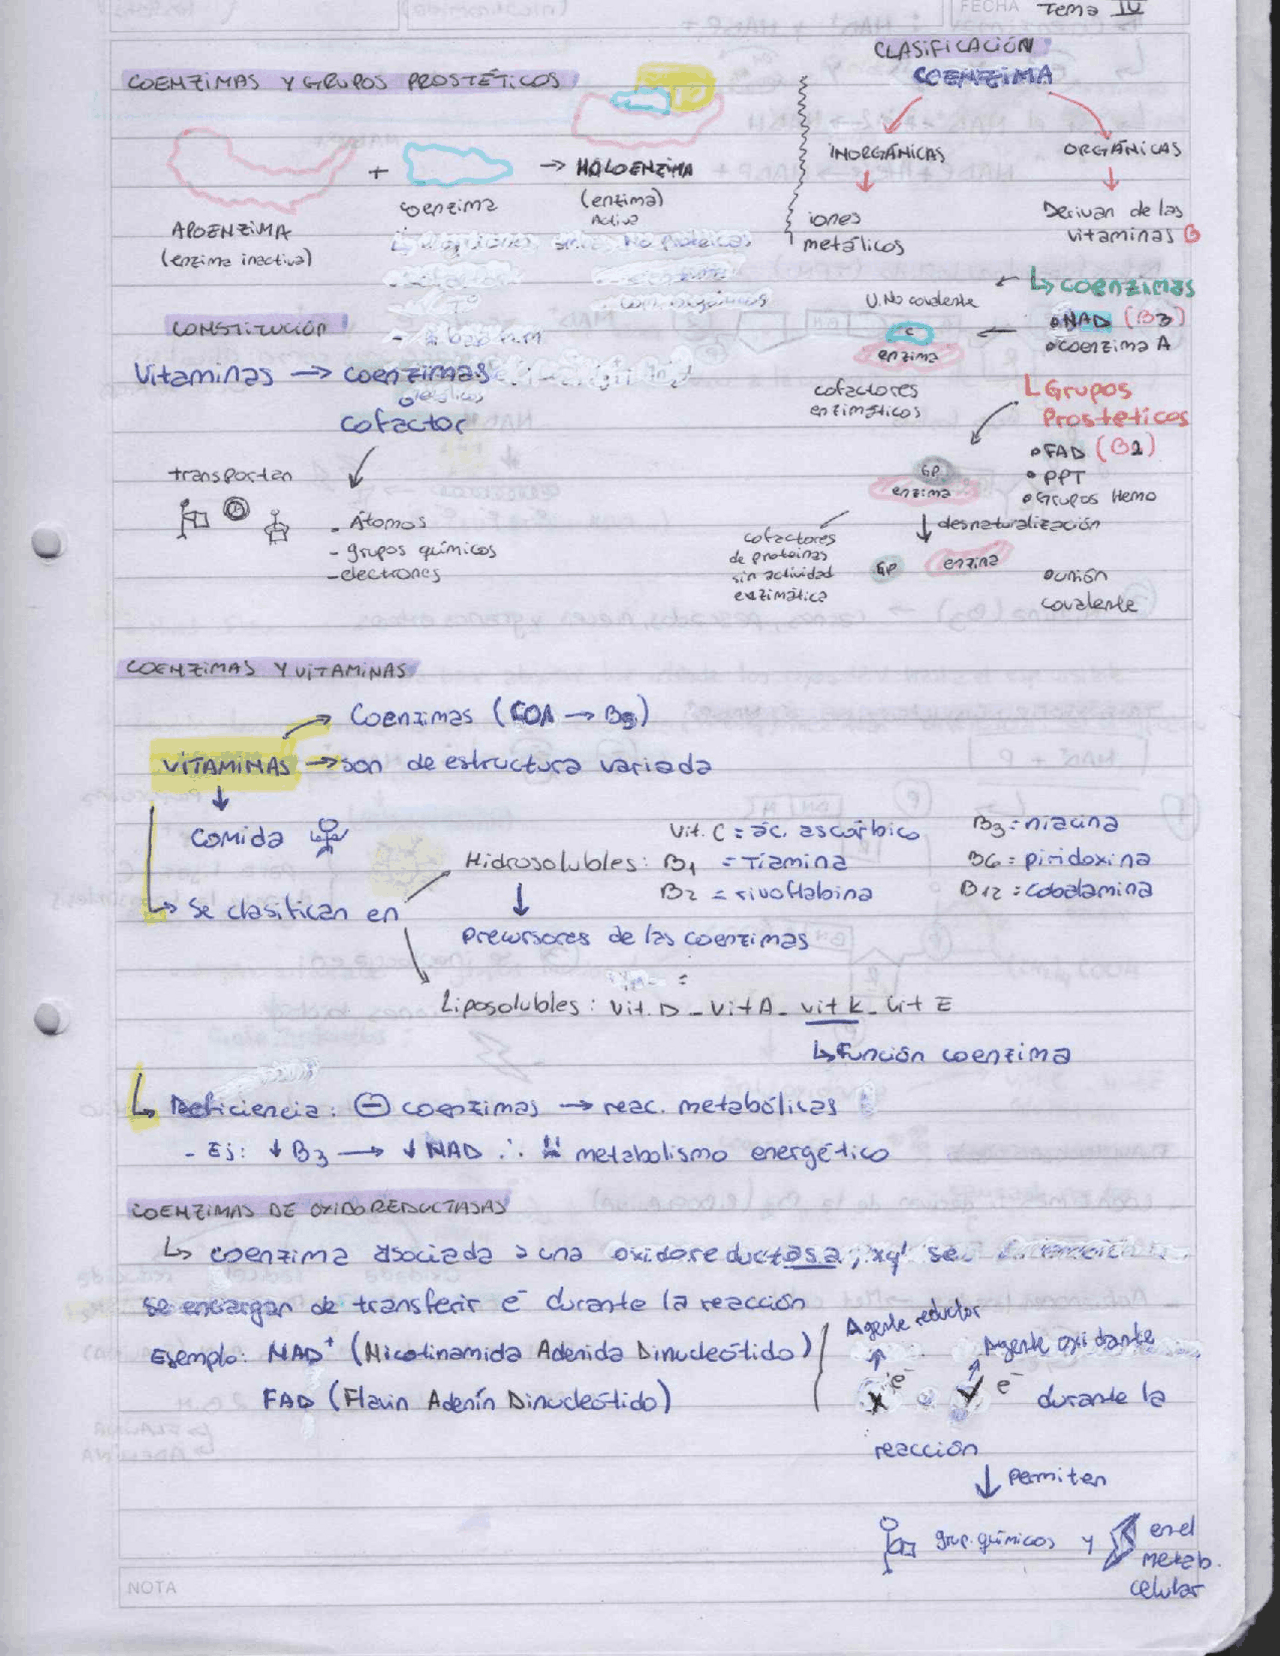 FECHA Tema IV
COENZIMAS Y GRUPOS PROSTÉTICOS
APOENZIMA
(enzima inactiva)
+
coenzima
→ HOLOENZIMA
(enzima)
Activa
CONSTITUCIÓN
Vitaminas → coenzimas
o
cofactor
transportan
- Átomos
- grupos químicos
- electrones
CLASIFICACIÓN
COENZIMA
INORGÁNICAS
iones
metálicos
ORGÁNICAS
Derivan de las
vitaminas B
↳ coenzimas
• NAD (B3)
• coenzima A
U. No covalente
C
enzima
cofactores
enzimáticos
↳ Grupos
Prosteticos
• FAD (B2)
• PPT
• Grupos Hemo
GP
enzima
↓ desnaturalización
GP enzina
cofactores
de proteinas
sin actividad
enzimática
• unión
covalente
COENZIMAS Y VITAMINAS
Coenzimas (COA → B5)
VITAMINAS → son de estructura variada
↓
Comida
↳ Se clasifican en
Hidrosolubles: Vit. C = ác. ascórbico B3 = niacina
B1 = Tiamina B6 = piridoxina
B2 = rivoflabina B12 = cobalamina
↓
precursores de las coenzimas
Liposolubles: Vit. D - Vit A - vit k - vit E
↳ Función coenzima
↳ Deficiencia: ⊖ coenzimas → reac. metabólicas
- Ej: ↓ B3 → ↓ NAD ∴ metabolismo energético
COENZIMAS DE OXIDOREDUCTASAS
↳ coenzima asociada a una oxidoreductasa, xq' se
se encargan de transferir e⁻ durante la reacción
Ejemplo: NAD⁺ (Nicotinamida Adenida Dinucleótido)
FAD (Flavin Adenín Dinucleótido)
Agente reductor
Agente oxidante
x e⁻ y e⁻ durante la
reacción
↓ permiten
grup. químicos y en el
metab.
celular
NOTA